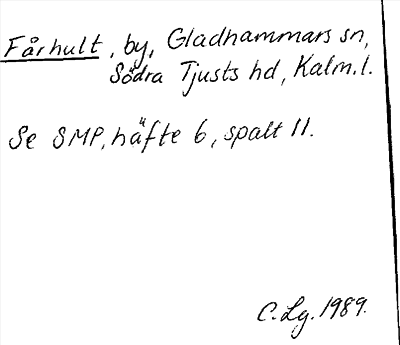 Fårhult, by, Gladhammars sn,
Södra Tjusts hd, Kalm. l.
Se SMP, häfte 6, spalt 11.
C. Lg. 1989.